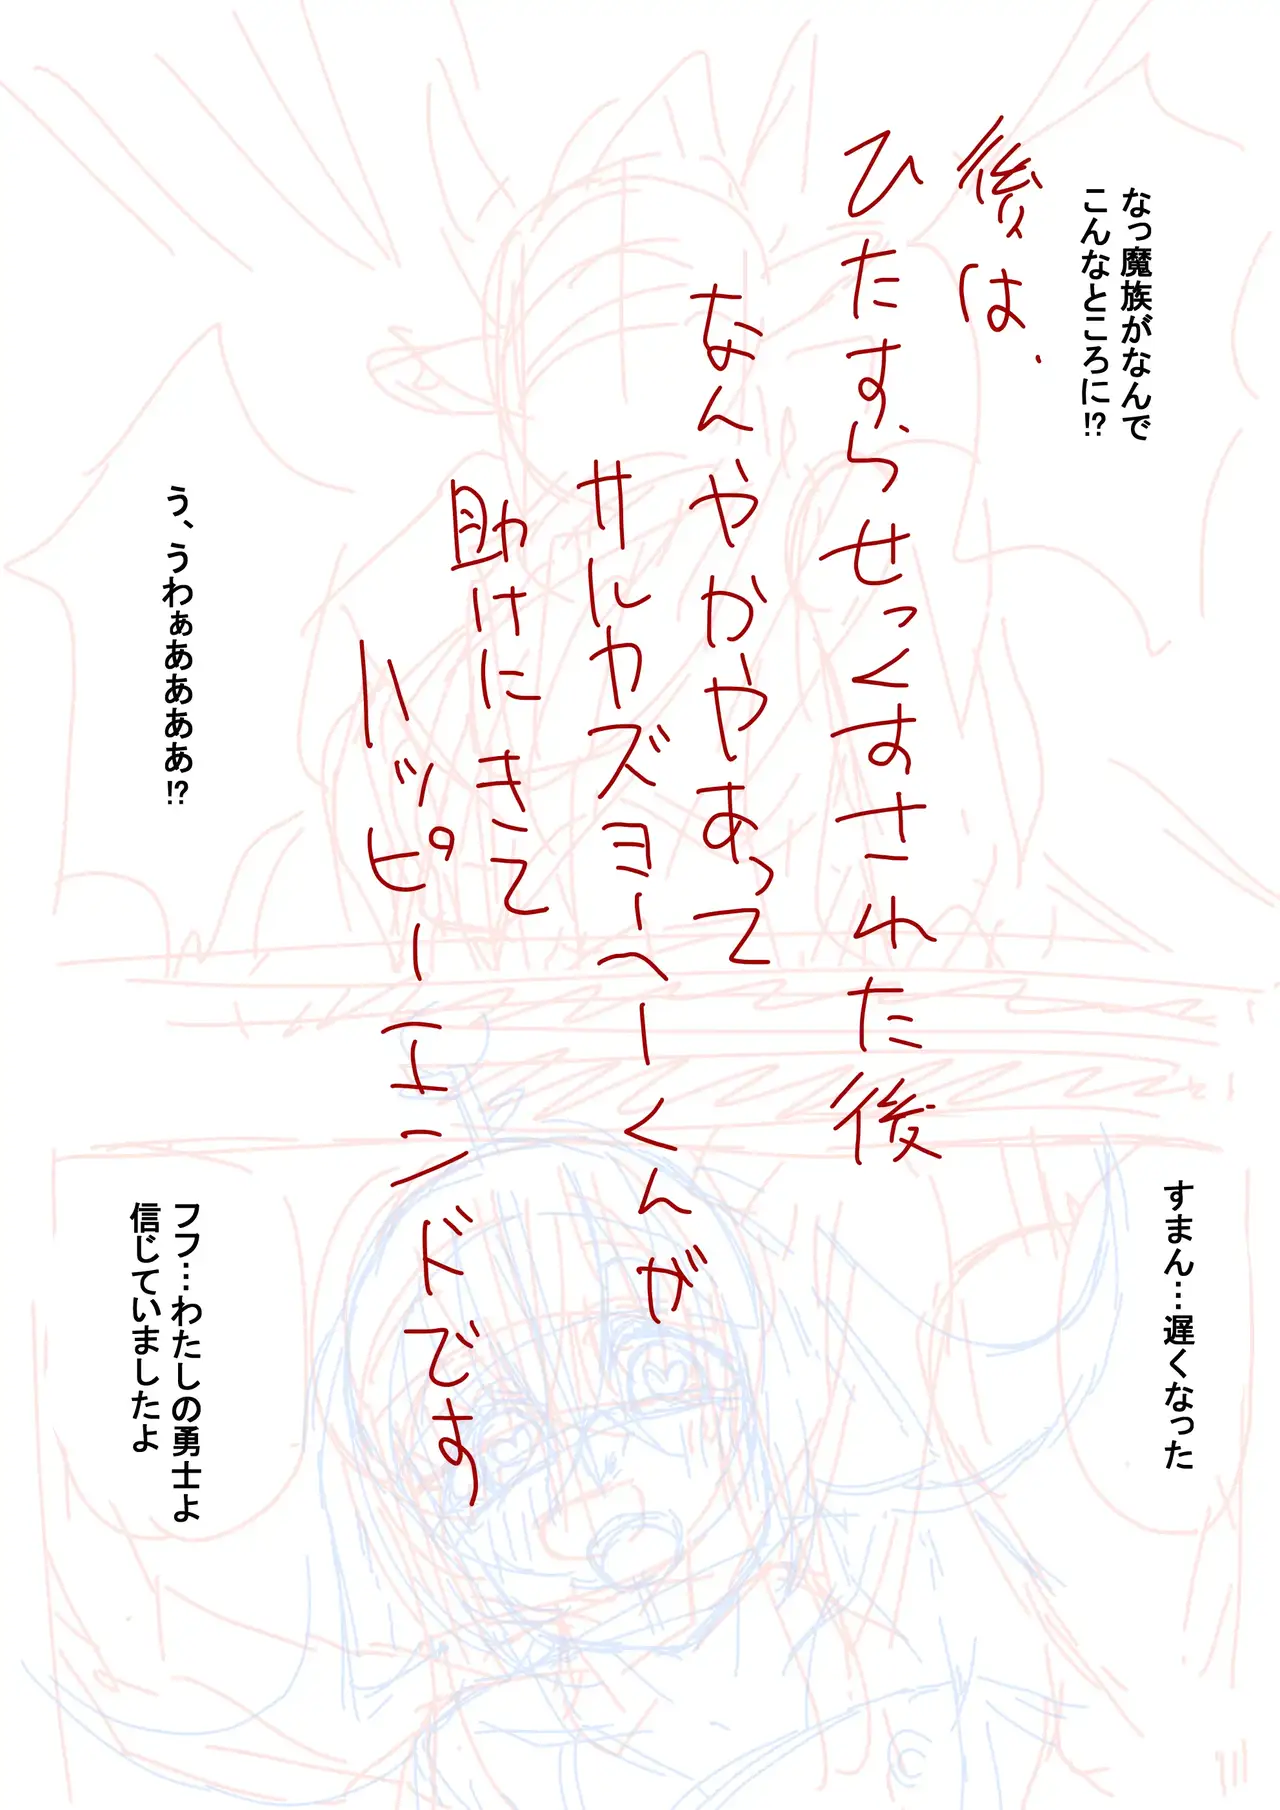 なっ魔族がなんで
こんなところに!?
後は、
ひたすらせっくすされた後
なんやかやあって
サルカズヨーヘーくんが
助けにきて
ハッピーエンドです
う、うわぁああああ!?
すまん…遅くなった
フフ…わたしの勇士よ
信じていましたよ